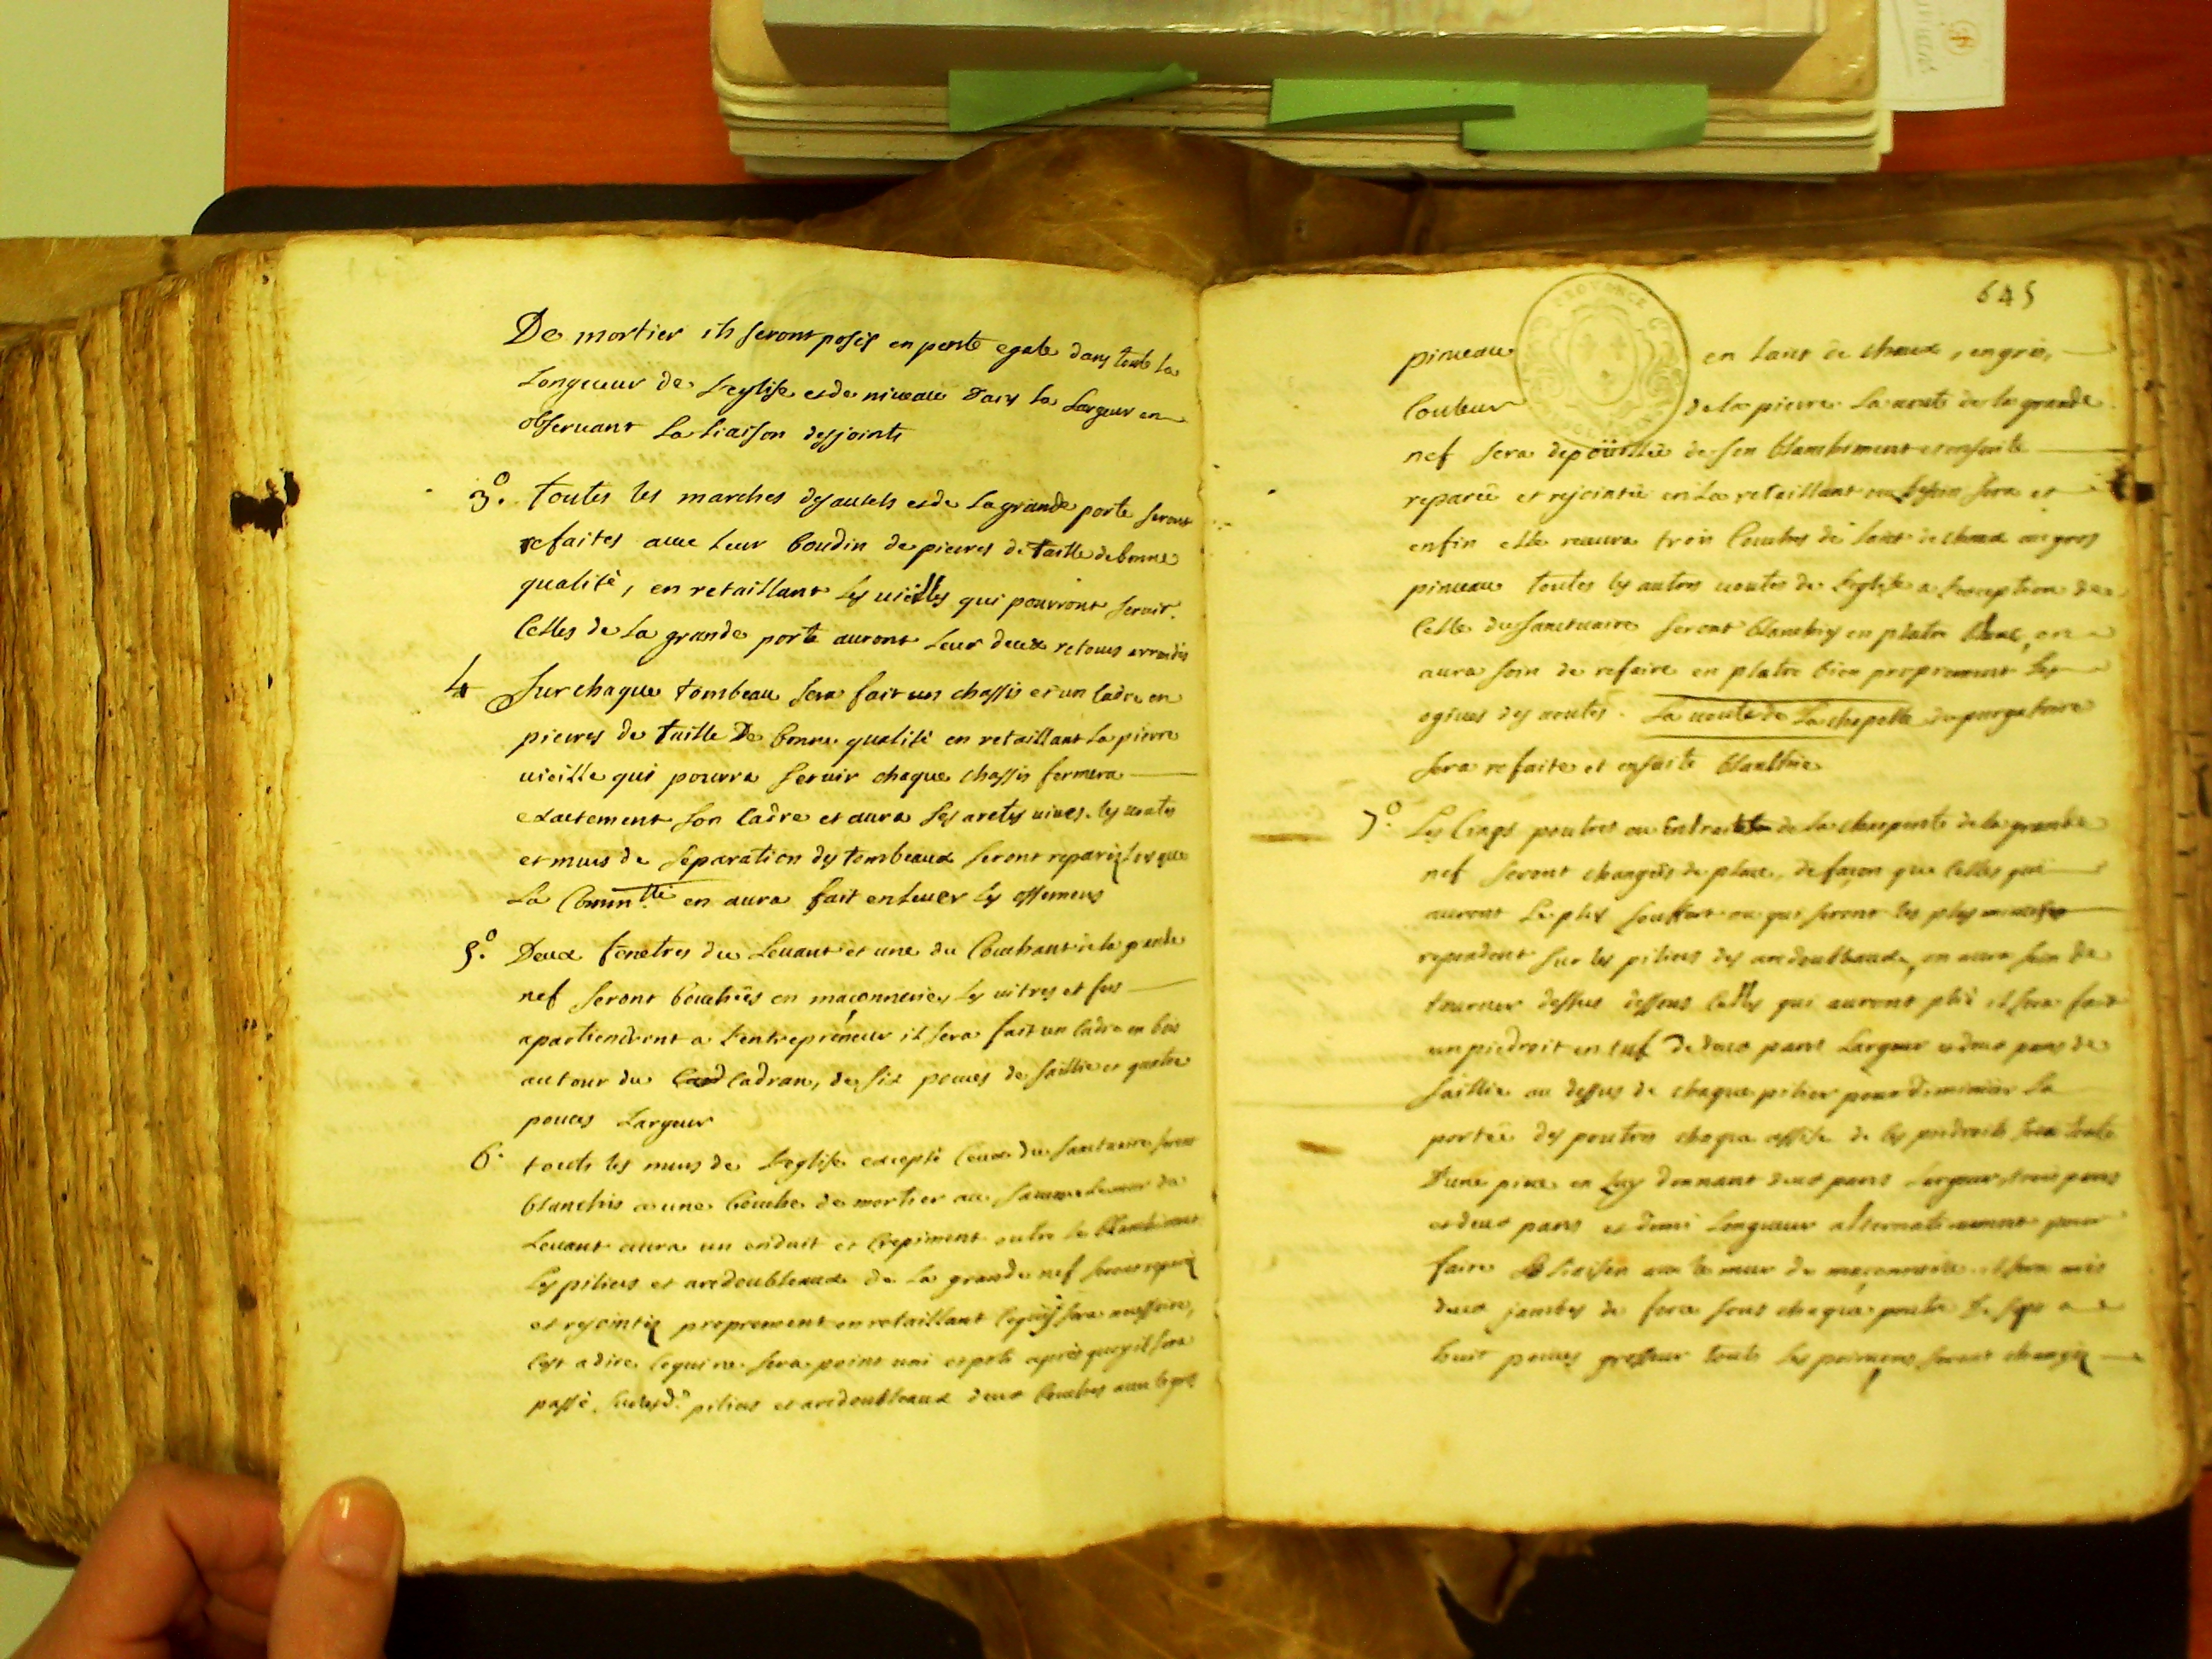 De mortier ils seront posés en pente egale dans toute la
Longueur de L'eglise et de niveau dans la Largeur en
observant La Liaison des joints
3º. toutes les marches des autels et de La grande porte seront
refaites avec Leur boudin de pierres de taille de bonne
qualité, en retaillant Les vieilles qui pourront servir.
Celles de La grande porte auront Leur deux retours arrondis
4 Sur chaque tombeau sera fait un chassis et un Cadre en
pierres de taille De bonne qualité en retaillant La pierre
vieille qui pourra servir chaque chassis fermera
exactement son Cadre et aura ses aretes vives. les voutes
et murs de separation des tombeaux seront reparés Lorsque
La Commtté en aura fait enlever Les ossemens
5º. Deux fenetres du Levant et une du Couchant de la grande
nef seront bouchées en maçonnerie, Les vitres et fers
apartiendront a L'entrepreneur il sera fait un Cadre en bois
autour du Cadran, de six pouces de saillie et quatre
pouces Largeur
6. touts les murs de L'eglise excepté Ceux du sanctuaire seront
blanchis a une Couche de mortier au
Levant aura un enduit et Crepiment outre le blanchiment
Les piliers et arcdoubleaux de La grande nef seront reparés
et rejointés proprement en retaillant Ce qui sera necessaire,
C'est a dire Ce qui ne sera point uni après quoy il sera
passé, sur les d. piliers et arcdoubleaux deux Couches avec le gros
645
PROVENCE
pinceau en Lait de chaux, en gris,
Couleur de la pierre La voute de la grande
nef sera depouillée de son blanchiment et ensuite
reparée et rejointée en La retaillant ou besoin sera et
enfin elle recevra trois Couches de Lait de chaux au gros
pinceau toutes les autres voutes de L'eglise a L'exception de
Celle du sanctuaire seront blanchies en platre blanc, on
aura soin de refaire en platre bien proprement Les
ogives des voutes. La voute de La chapelle du purgatoire
sera refaite et ensuite blanchie
7º. Les Cinqs poutres ou de La charpente de la grande
nef seront changées de place, de façon que Celles qui
auront Le plus souffert ou qui seront les plus
repondent sur les piliers des arcdoubleaux, on aura soin de
tourner dessus dessous Celles qui auront plié il sera fait
un piedroit en tuf de deux pans Largeur et deux pans de
saillie au dessus de chaque pilier pour diminuer La
portée des poutres chaque assise de Ces piedroits sera toute
D'une piece en Luy donnant deux pans Largeur, trois pans
et deux pans et demi Longueur alternativement pour
faire Liaison avec le mur de maçonnerie. il sera mis
deux jambes de force sous chaque poutre De sept a
huit pouces grosseur touts Les seront changés